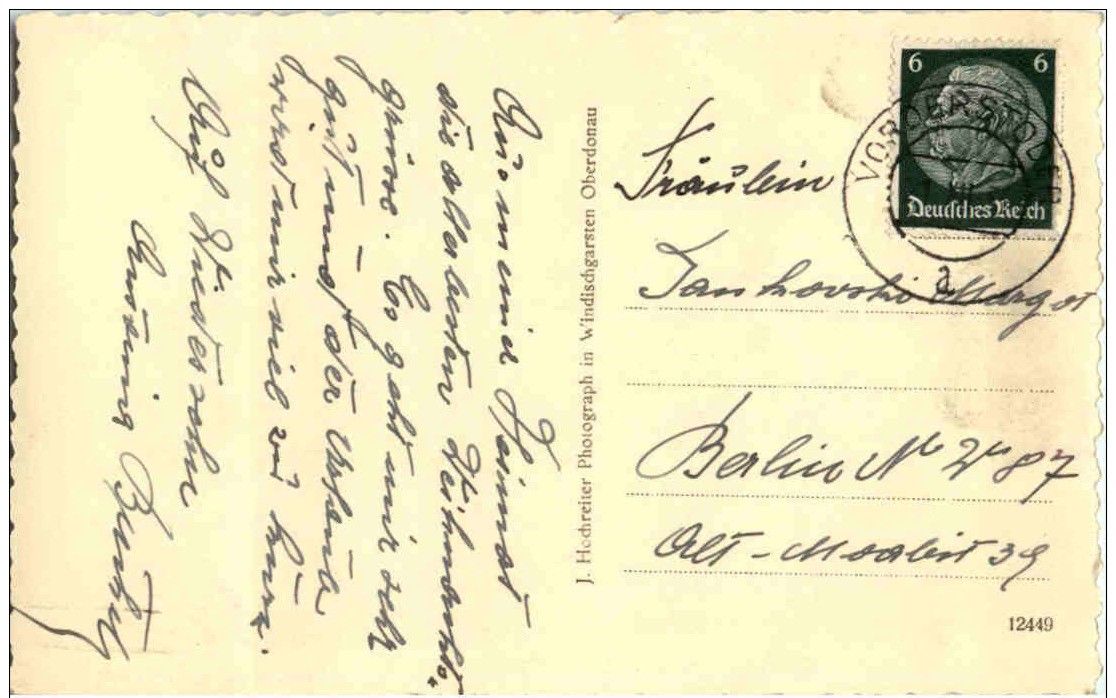 Aus meiner Heimat
die allerbesten Weihnachts-
grüsse. Es geht mir sehr
gut und der Urlaub
wird mir viel zu kurz.
Auf Wiedersehn
J. Hochreiter Photograph in Windischgarsten Oberdonau
6 6
Deutsches Reich
VORDERSTODER
a
Fräulein
Jankovski Margot
Berlin NW 87
Alt-Moabit 39
12449